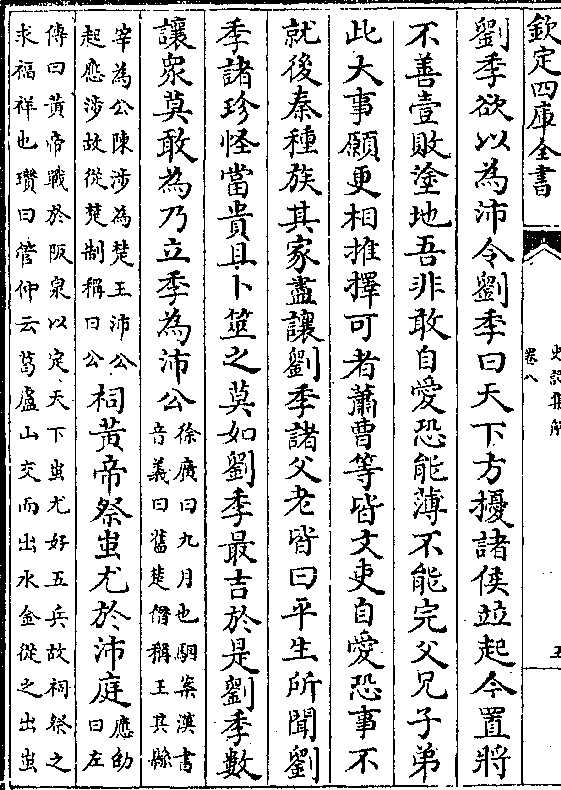 欽定四庫全書
史記集解
卷八
五
劉季欲以為沛令劉季曰天下方擾諸侯竝起今置將
不善壹敗塗地吾非敢自愛恐能薄不能完父兄子弟
此大事願更相推擇可者蕭曹等皆文吏自愛恐事不
就後秦種族其家盡讓劉季諸父老皆曰平生所聞劉
季諸珍怪當貴且卜筮之莫如劉季最吉於是劉季數
讓衆莫敢為乃立季為沛公
徐廣曰九月也駰案漢書
音義曰舊楚僭稱王其縣
宰為公陳涉為楚王沛公
起應涉故從楚制稱曰公
祠黄帝祭蚩尤於沛庭
應劭
曰左
傳曰黄帝戰於阪泉以定天下蚩尤好五兵故祠祭之
求福祥也瓚曰管仲云葛盧山交而出水金從之出蚩